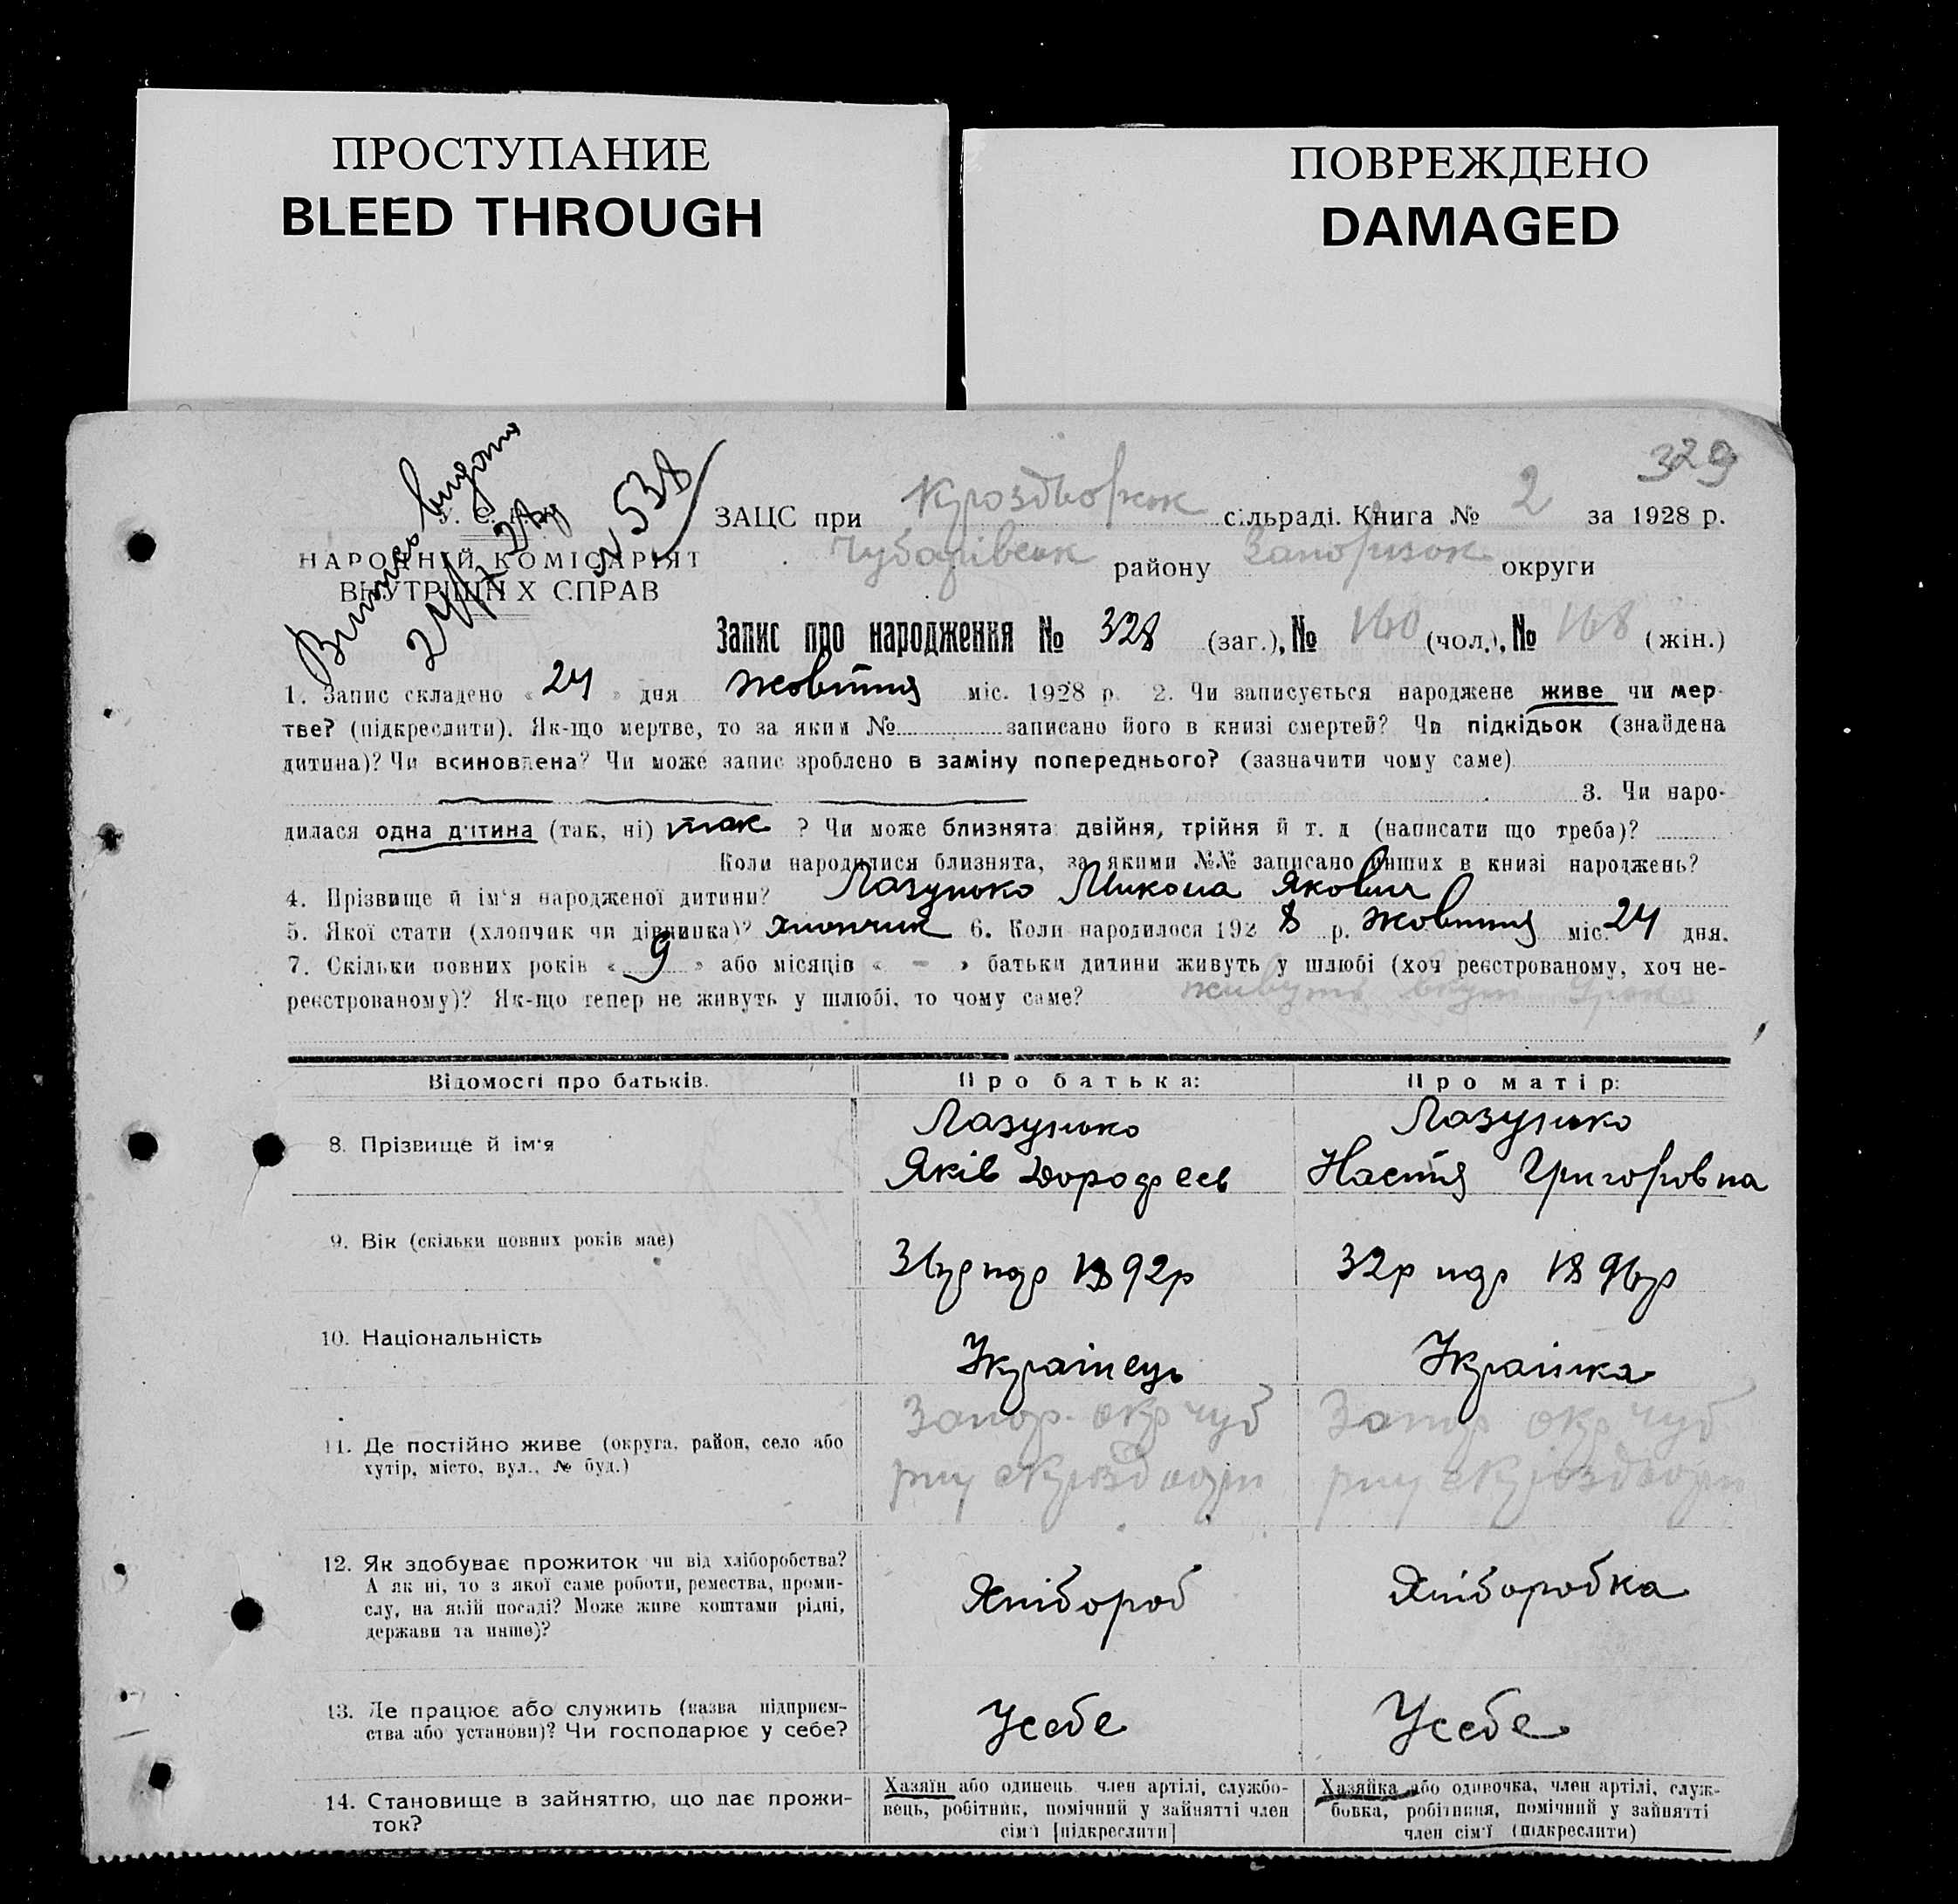 ПРОСТУПАНИЕ
BLEED THROUGH
ПОВРЕЖДЕНО
DAMAGED
329
Витяг видано
№ 538
У. С. Р. Р.
НАРОДНІЙ КОМІСАРІЯТ
ВНУТРІШНІХ СПРАВ
ЗАЦС при сільраді. Книга № 2 за 1928 р.
Чубарівськ району Запорізьк округи
Запис про народження № 328 (заг.), № 160 (чол.), № 168 (жін.)
1. Запис складено « 24 » дня жовтня міс. 1928 р. 2. Чи записується народжене живе чи мер-
тве? (підкреслити). Як-що мертве, то за яким № записано його в книзі смертей? Чи підкідьок (знайдена
дитина)? Чи всиновлена? Чи може запис зроблено в заміну попереднього? (зазначити чому саме)
3. Чи наро-
дилася одна дитина (так, ні) так ? Чи може близнята: двійня, трійня й т. д (написати що треба)?
Коли народилися близнята, за якими №№ записано инших в книзі народжень?
4. Прізвище й ім'я народженої дитини? Лазунько Микола Якович
5. Якої стати (хлопчик чи дівчинка)? хлопчик 6. Коли народилося 1928 р. жовтня міс. 24 дня.
7. Скільки повних років « 9 » або місяців « - » батьки дитини живуть у шлюбі (хоч реєстрованому, хоч не-
реєстрованому)? Як-що тепер не живуть у шлюбі, то чому саме? живуть вкупі
Відомості про батьків. Про батька: Про матір:
8. Прізвище й ім'я
Лазунько
Яків Дорофеєв
Лазунько
Настя Григоровна
9. Вік (скільки повних років має)
36р нар 1892р
32р нар 1896р
10. Національність
Українець
Українка
11. Де постійно живе (округа, район, село або
хутір, місто, вул., № буд.)
Запор. окр Чуб
Запор окр Чуб
12. Як здобуває прожиток чи від хліборобства?
А як ні, то з якої саме роботи, ремества, проми-
слу, на якій посаді? Може живе коштами рідні,
держави та инше)?
Хлібороб
Хліборобка
13. Де працює або служить (назва підприєм-
ства або установи)? Чи господарює у себе?
Усебе
Усебе
14. Становище в зайняттю, що дає прожи-
ток?
Хазяїн або одинець, член артілі, службо-
вець, робітник, помічний у зайнятті член
сім'ї [підкреслити]
Хазяйка або одиночка, член артілі, служ-
бовка, робітниця, помічний у зайнятті
член сім'ї (підкреслити)